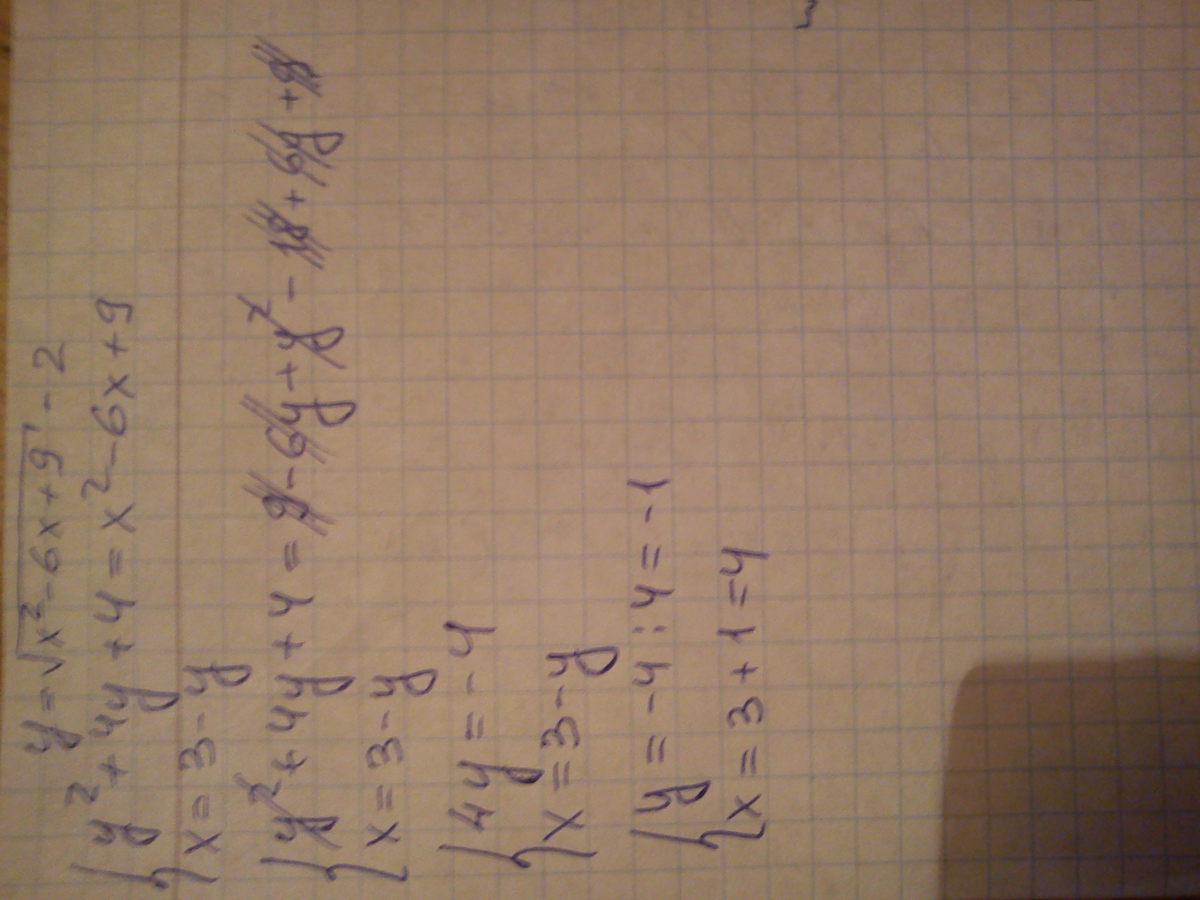 y = √x² - 6x + 9 - 2
{ y² + 4y + 4 = x² - 6x + 9
x = 3 - y
{ y² + 4y + 4 = 9 - 6y + y² - 18 + 6y + 9
x = 3 - y
{ 4y = -4
x = 3 - y
{ y = -4 : 4 = -1
x = 3 + 1 = 4